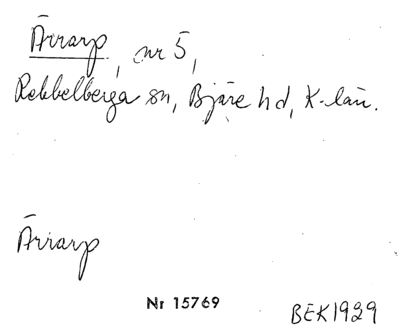 Ärrarp, nr 5,
Rebbelberga sn, Bjäre hd, K-län.
Ärrarp
Nr 15769
BEK1929